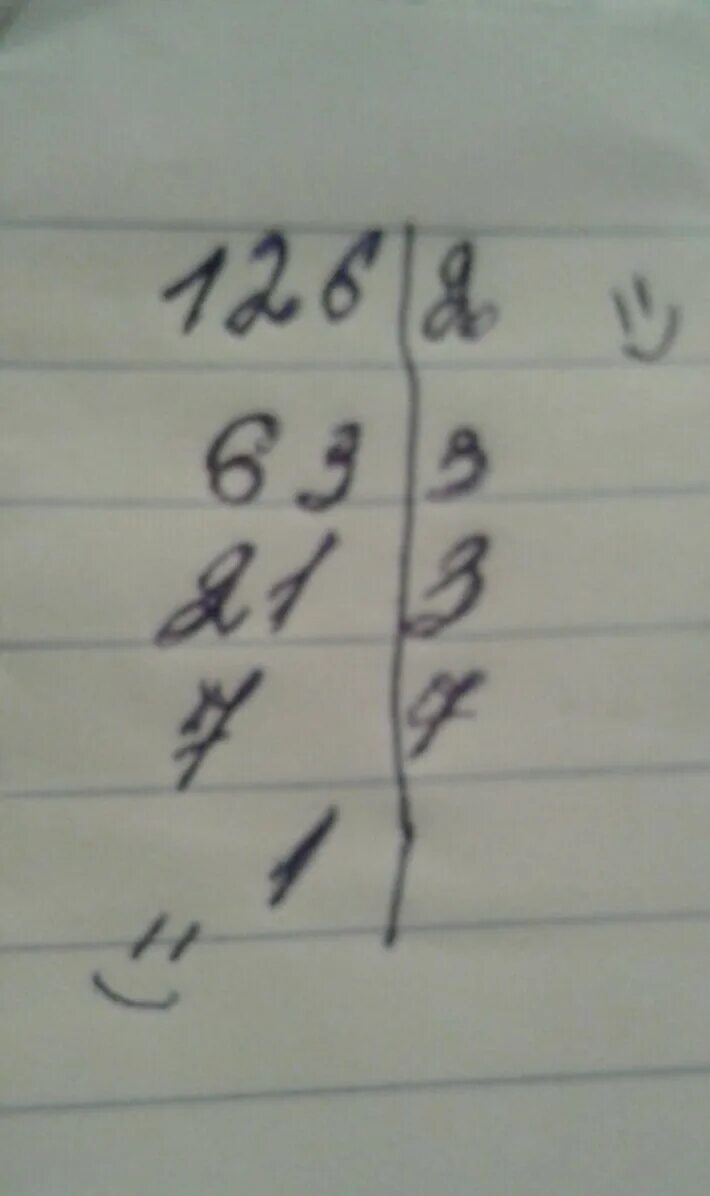 126 | 2
63 | 3
21 | 3
7 | 7
1 |